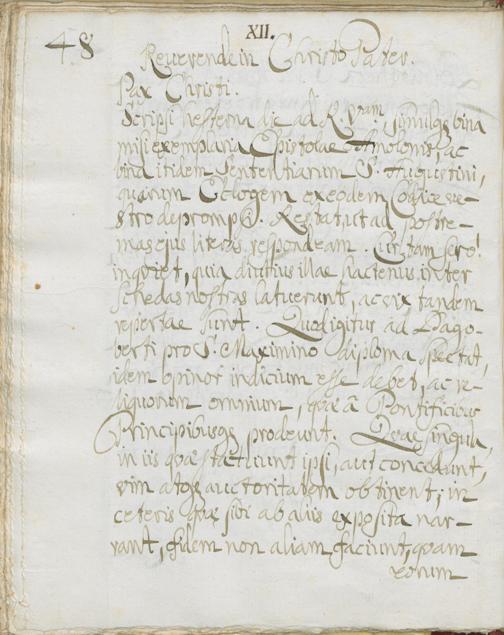 48
XII.
Reverende in Christo Pater.
Pax Christi.
Scripsi hesterna die ad R. Vam, simulq; bina
misi exemplaria Epistolae ac
bina itidem Sententiarum S. Augustini,
quarum Eclogem ex eodem Codice ve-
stro deprompsi. Restat ut ad postre-
mas ejus literas respondeam. Cur tam sero!
inquiet, quia diutius illae hactenus inter
schedas nostras latuerunt, ac vix tandem
repertae sunt. Quod igitur ad Dago-
berti pro S. Maximino diploma spectat,
idem opinor iudicium esse debet, ac re-
liquorum omnium, quae à Pontificibus
Principibusq; prodeunt. Quae singula,
in iis quae statuunt ipsi, aut concedunt,
vim atq; auctoritatem obtinent; in
ceteris quae sibi ab aliis exposita nar-
rant, fidem non aliam faciunt, quam
eorum